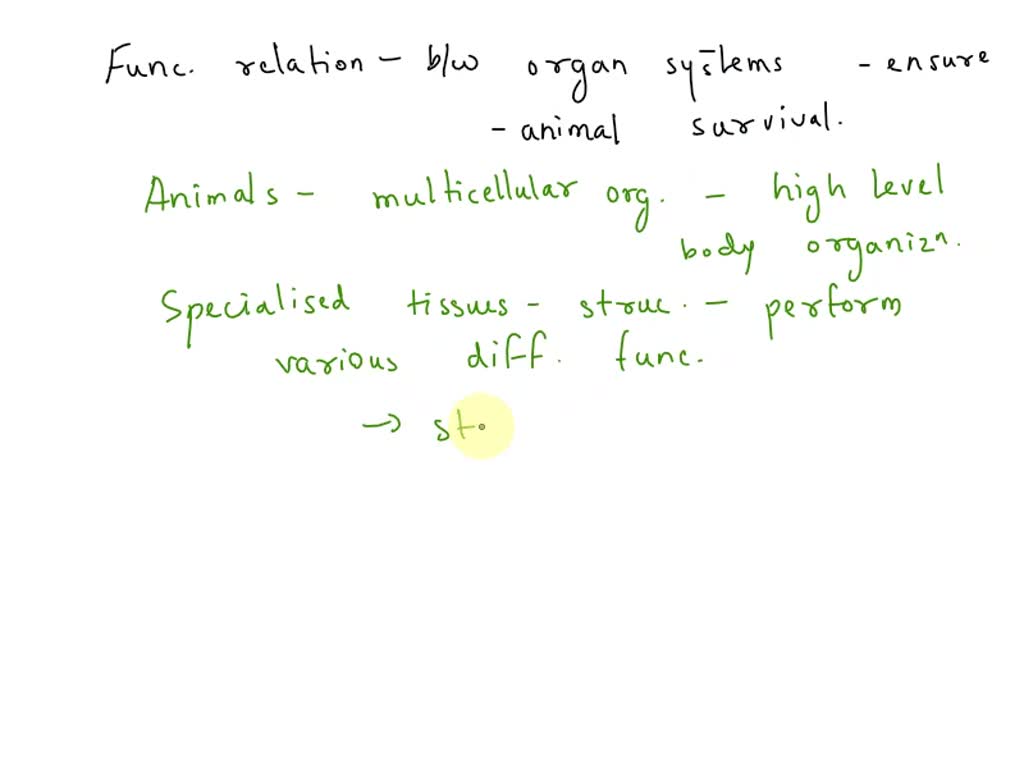 Func. relation - b/w organ systems - ensure
- animal survival.
Animals - multicellular org. - high level
body organizn.
Specialised tissues - struc. - perform
various diff. func.
→ st